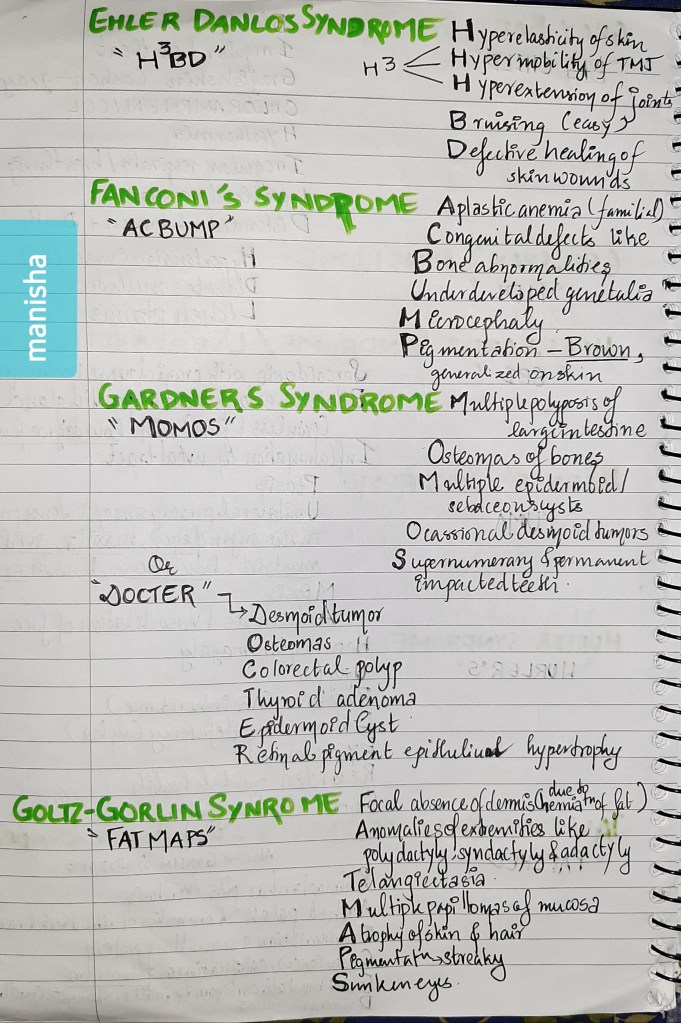 EHLER DANLO'S SYNDROME
"H³BD"
H3
Hyperelasticity of skin
Hypermobility of TMJ
Hyperextension of joints
Bruising (easy)
Defective healing of
skin wounds
FANCONI'S SYNDROME
"ACBUMP"
Aplastic anemia (familial)
Congenital defects like
Bone abnormalities
Underdeveloped genitalia
Microcephaly
Pigmentation - Brown,
generalized on skin
manisha
GARDNERS SYNDROME
"MOMOS"
Multiple polyposis of
large intestine
Osteomas of bones
Multiple epidermoid/
sebaceous cysts
Ocassional desmoid tumors
Supernumerary & permanent
impacted teeth.
Or
"DOCTER" → Desmoid tumor
Osteomas
Colorectal polyp
Thyroid adenoma
Epidermoid Cyst
Retinal pigment epithelium hypertrophy
GOLTZ-GORLIN SYNROME
"FAT MAPS"
Focal absence of dermis (due to herniatn of fat)
Anomalies of extremities like
polydactyly, syndactyly & adactyly
Telangiectasia
Multiple papillomas of mucosa
Atrophy of skin & hair
Pigmentatn → streaky
Sunken eyes.